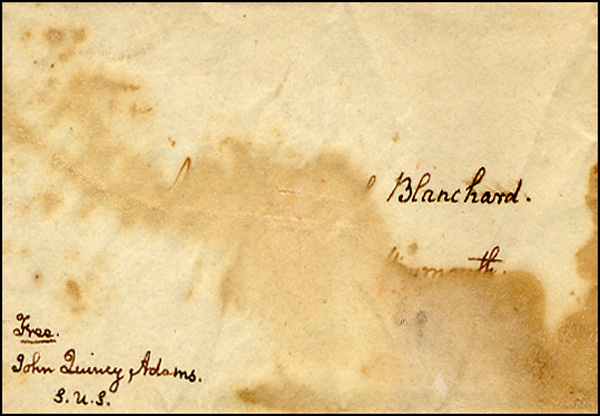 Blanchard.
Free.
John Quincy Adams.
S.U.S.